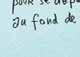 pour se dép
au fond de